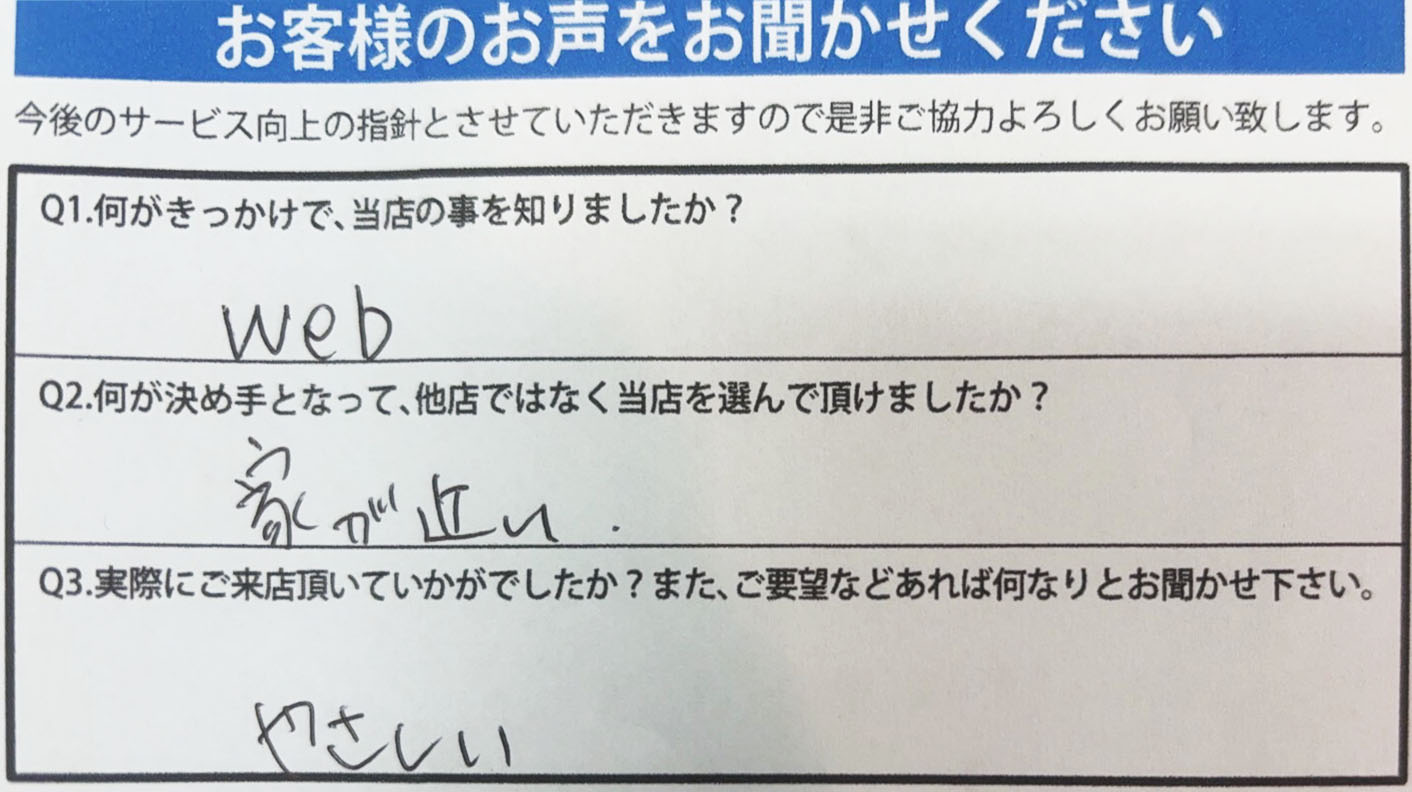 お客様のお声をお聞かせください
今後のサービス向上の指針とさせていただきますので是非ご協力よろしくお願い致します。
Q1.何がきっかけで、当店の事を知りましたか？
web
Q2.何が決め手となって、他店ではなく当店を選んで頂けましたか？
家が近い.
Q3.実際にご来店頂いていかがでしたか？また、ご要望などあれば何なりとお聞かせ下さい。
やさしい